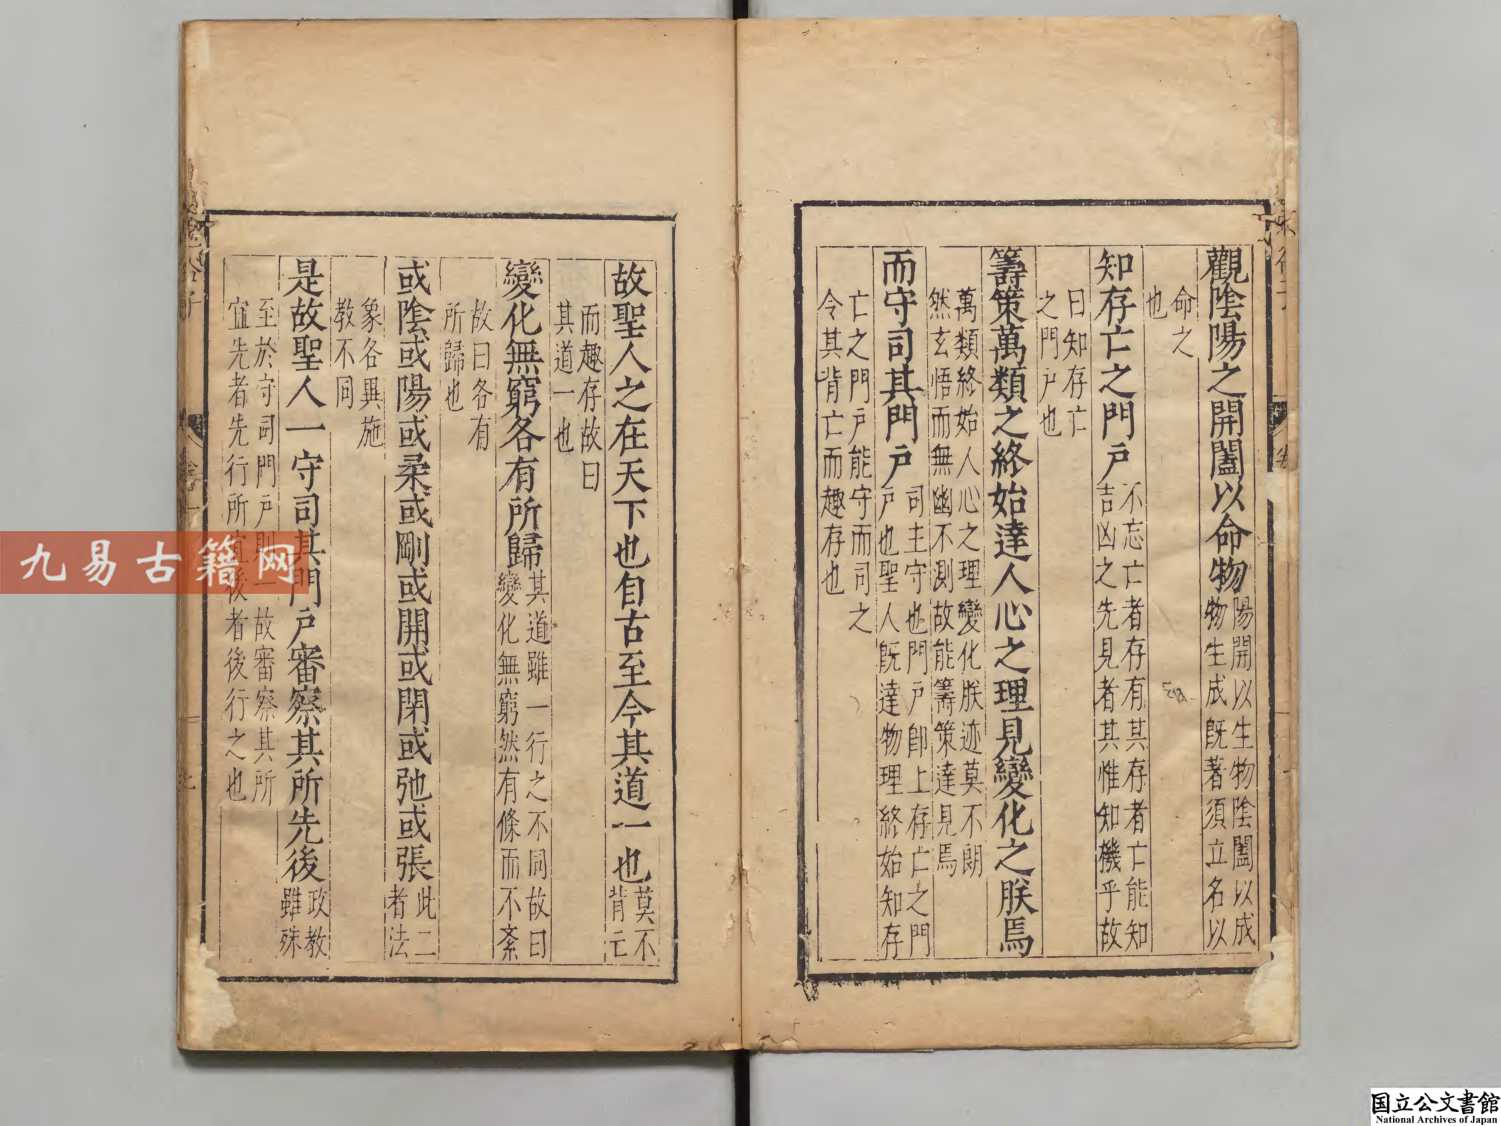 觀陰陽之開闔以命物陽開以生物陰闔以成
物生成既著須立名以
命之
也
知存亡之門戸不忘亡者存有其存者亡能知
吉凶之先見者其惟知機乎故
曰知存亡
之門戸也
籌策萬類之終始達人心之理見變化之朕焉
萬類終始人心之理變化朕迹莫不朗
然玄悟而無幽不測故能籌策達見焉
而守司其門戸司主守也門戸即上存亡之門
戸也聖人既達物理終始知存
亡之門戸能守而司之
令其背亡而趣存也
故聖人之在天下也自古至今其道一也莫不
背亡
而趣存故曰
其道一也
變化無窮各有所歸其道雖一行之不同故曰
變化無窮然有條而不紊
故曰各有
所歸也
或陰或陽或柔或剛或開或閉或弛或張此二
者法
象各異施
教不同
是故聖人一守司其門戸審察其所先後政教
雖殊
至於守司門戸則一故審察其所
宜先者先行所宜後者後行之也
九易古籍网
国立公文書館
National Archives of Japan